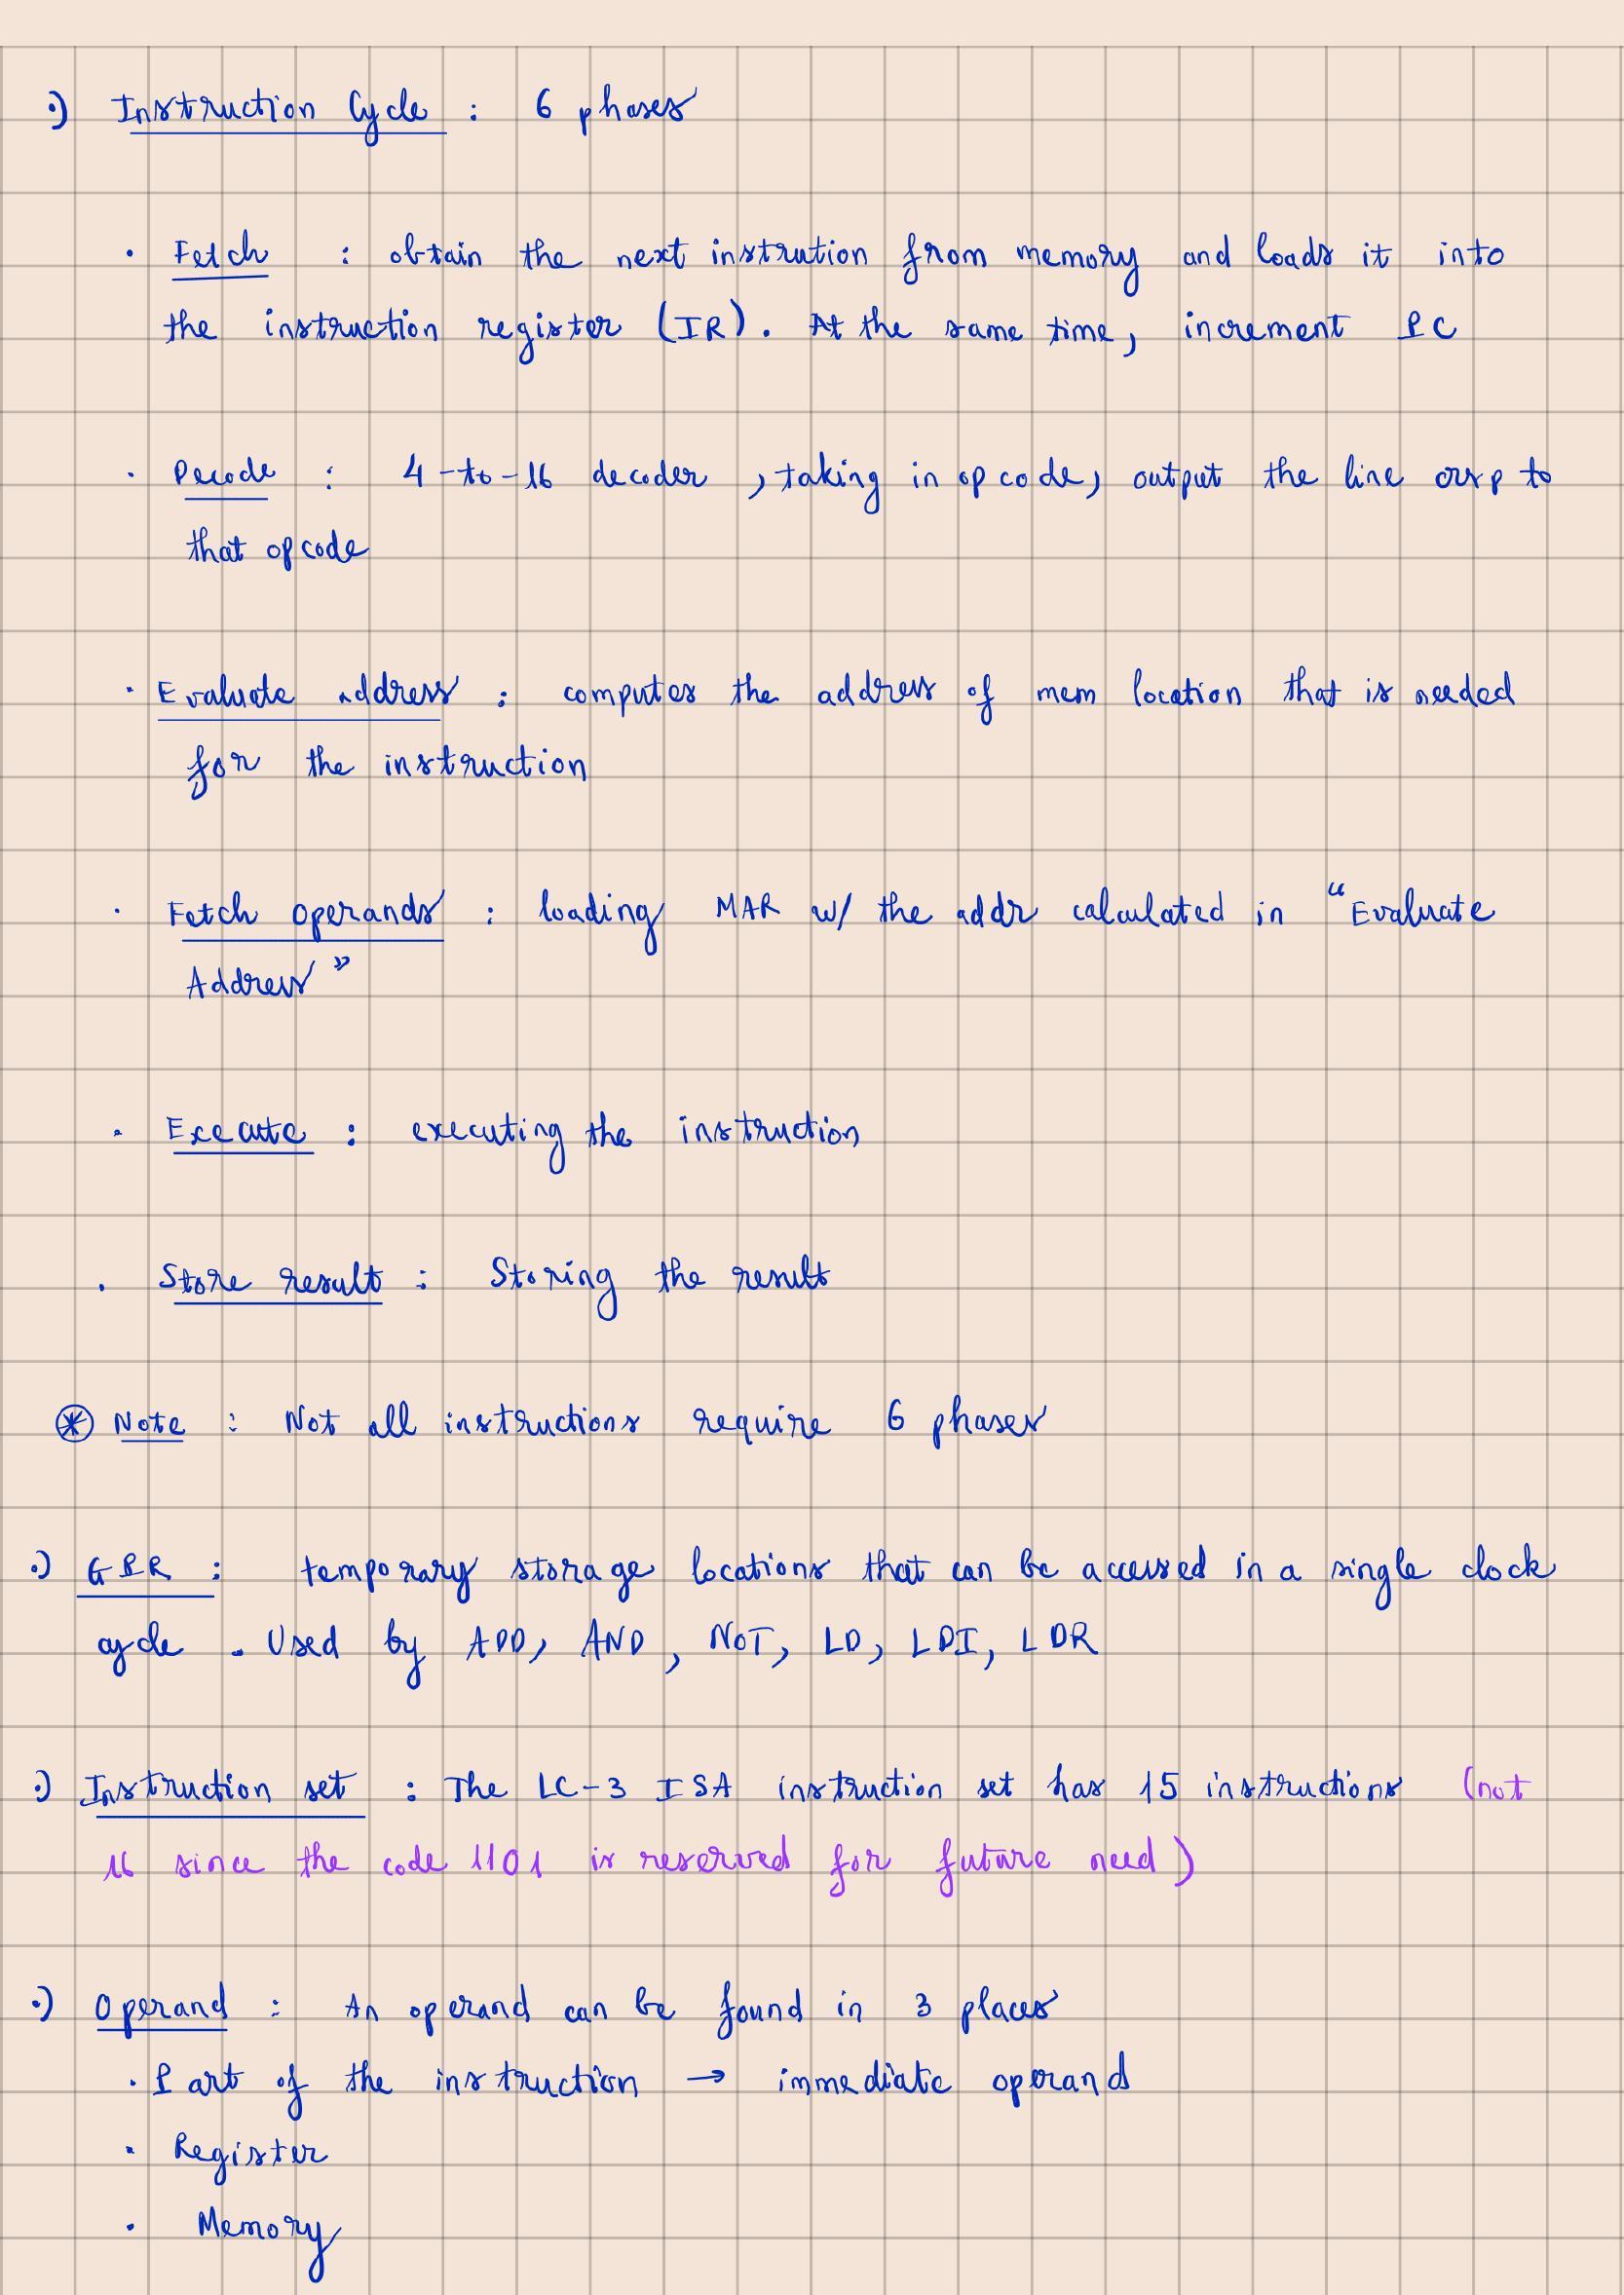 ·) Instruction Cycle : 6 phases
· Fetch : obtain the next instrution from memory and loads it into
the instruction register (IR). At the same time, increment PC
· Decode : 4-to-16 decoder, taking in opcode, output the line corrp to
that opcode
· Evaluate address : computes the address of mem location that is needed
for the instruction
· Fetch operands : loading MAR w/ the addr calculated in "Evaluate
Address"
· Execute : executing the instruction
· Store result : Storing the result
⊛ Note : Not all instructions require 6 phases
·) GPR : temporary storage locations that can be accessed in a single clock
cycle. Used by ADD, AND, NOT, LD, LDI, LDR
·) Instruction set : The LC-3 ISA instruction set has 15 instructions (not
16 since the code 1101 is reserved for future need)
·) Operand : An operand can be found in 3 places
· Part of the instruction → immediate operand
· Register
· Memory